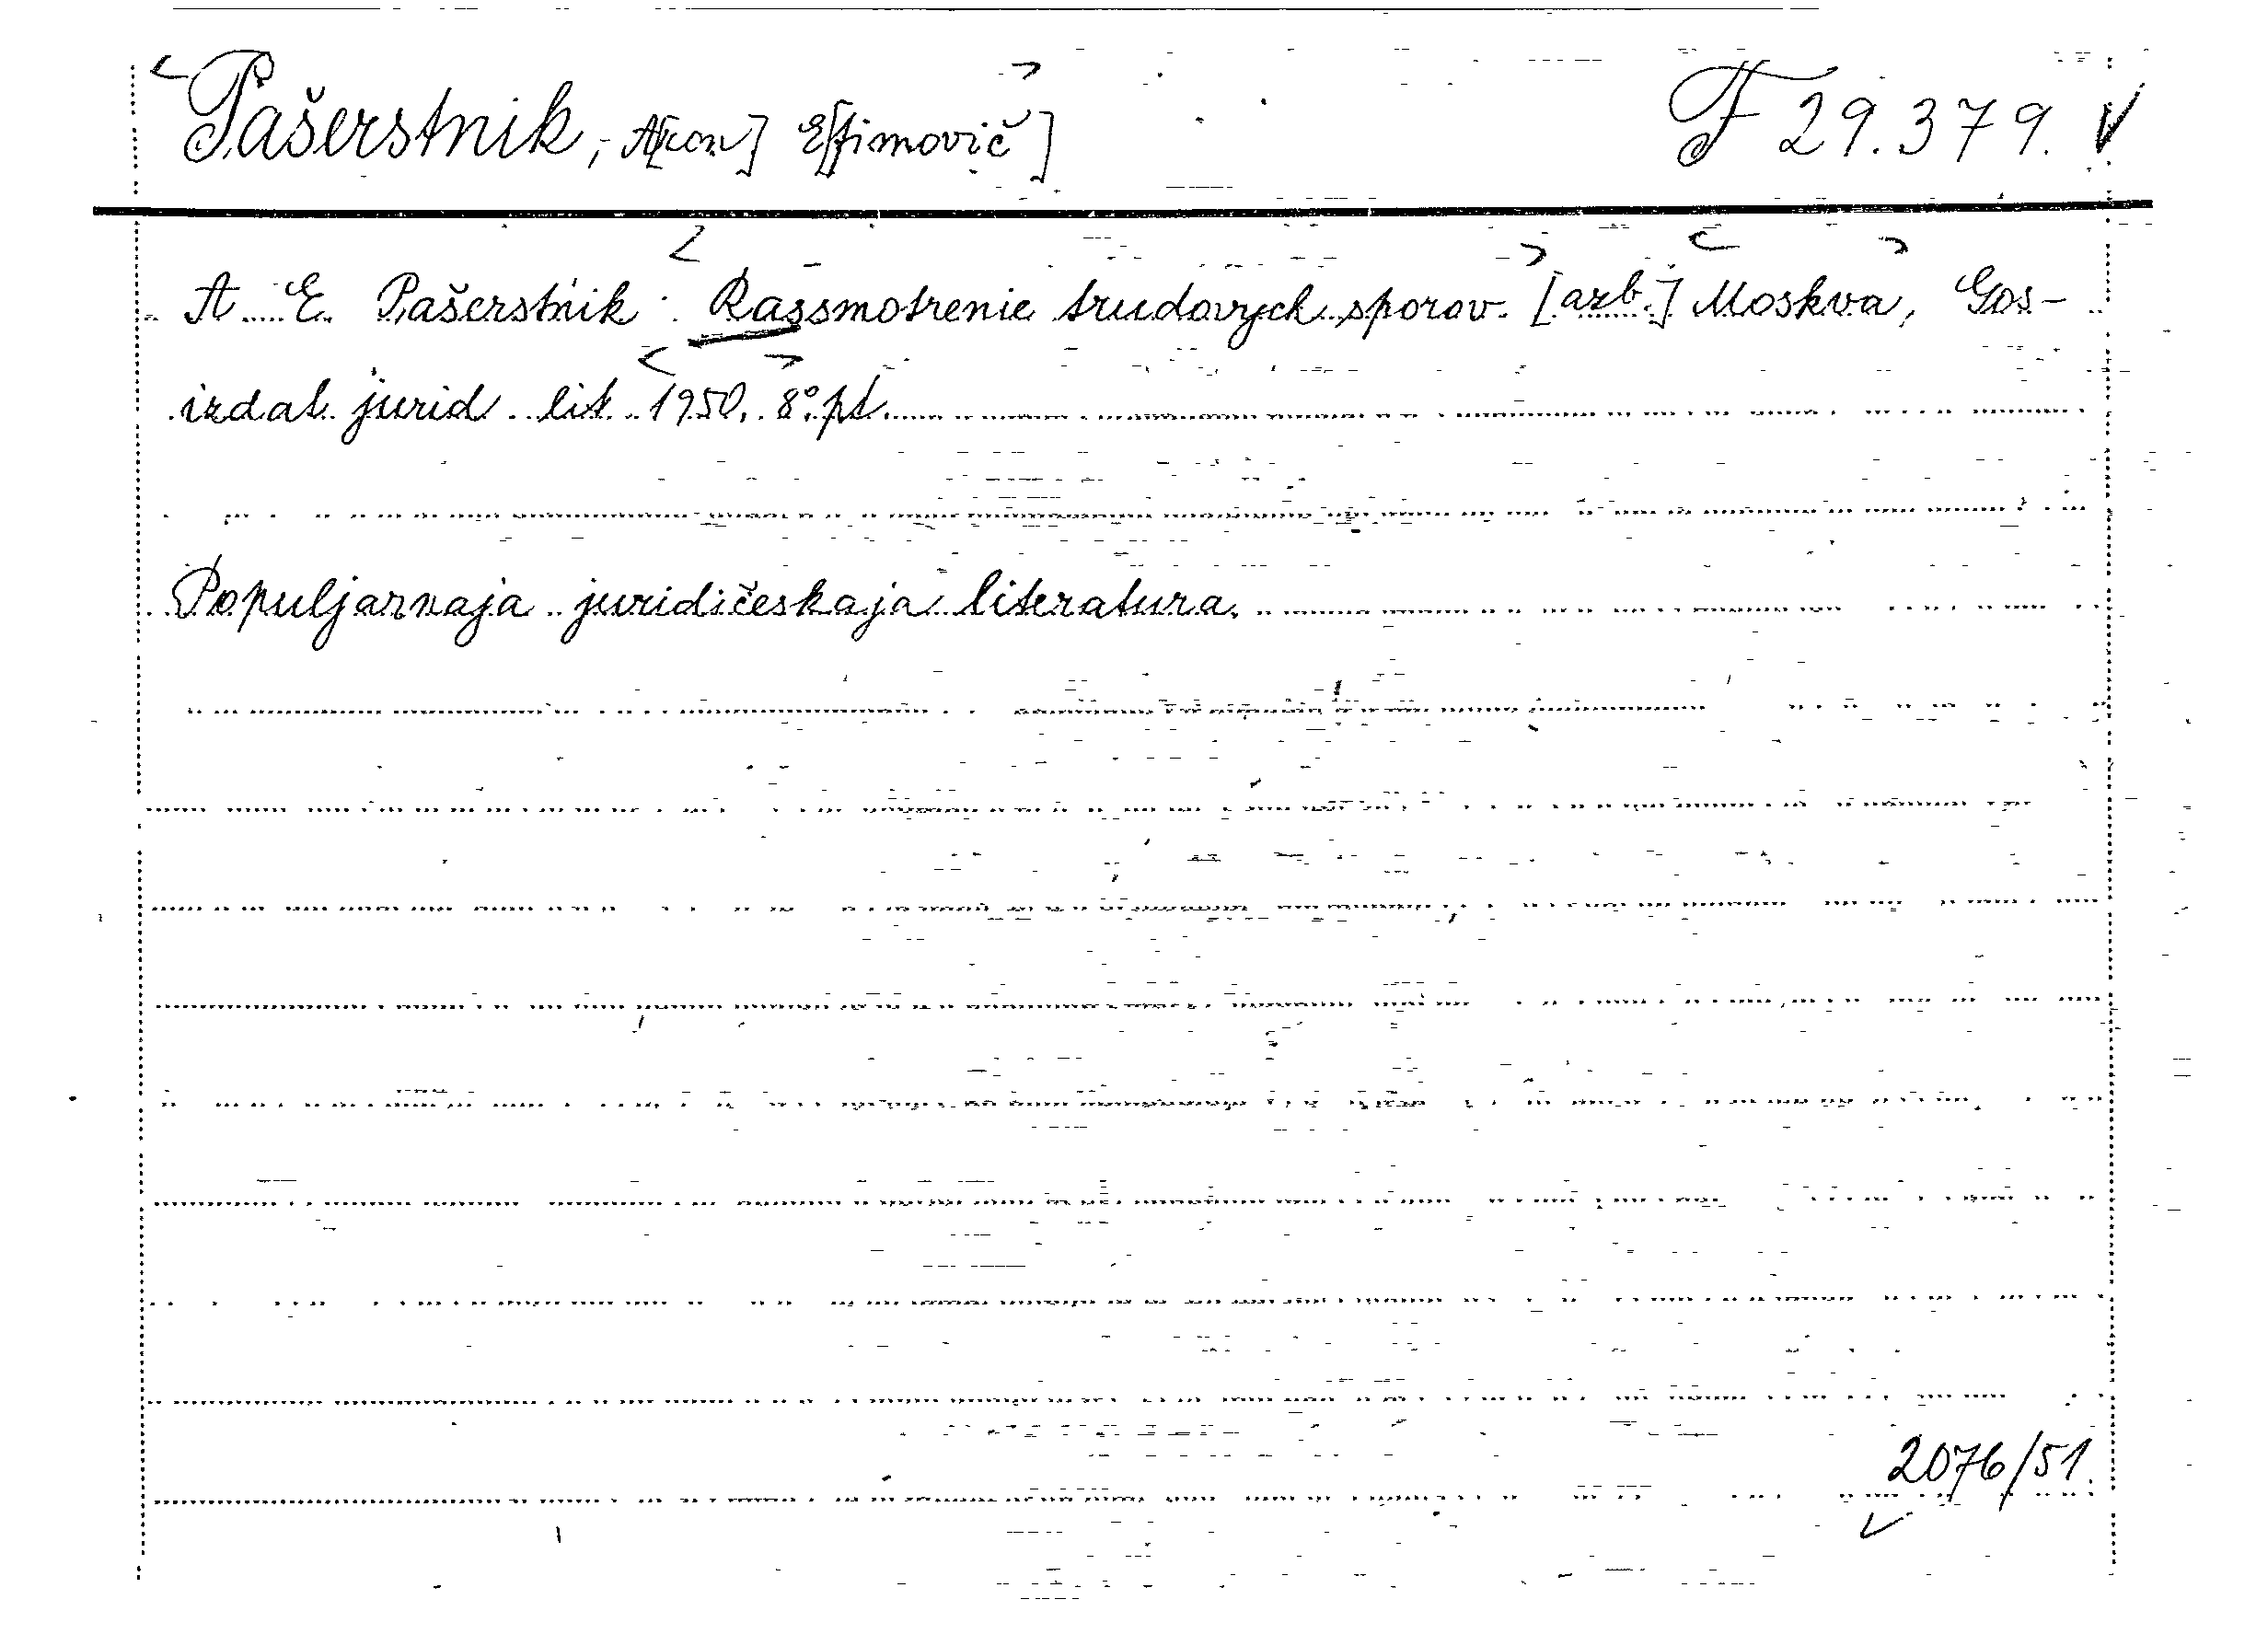 Pašerstnik, A[ron] E[fimovič] F 29.379.
A. E. Pašerstnik: Rassmotrenie trudovych sporov. [azb.] Moskva, Gos-
izdat jurid. lit. 1950. 8°. pt.
Populjarnaja juridičeskaja literatura.
2076/51.